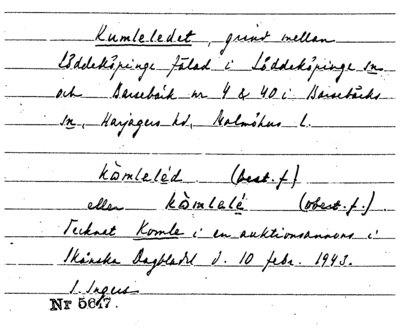 Kumleledet, grind mellan
Löddeköpinge fälad i Löddeköpinge sn
och Barsebäck nr 4 & 40 i Barsebäcks
sn, Harjagers hd, Malmöhus l.
(best. f.)
eller (obest. f.)
Tecknat Komle i en auktionsannons i
Skånska Dagbladet d. 10 febr. 1943.
I. Ingers
Nr 5647.